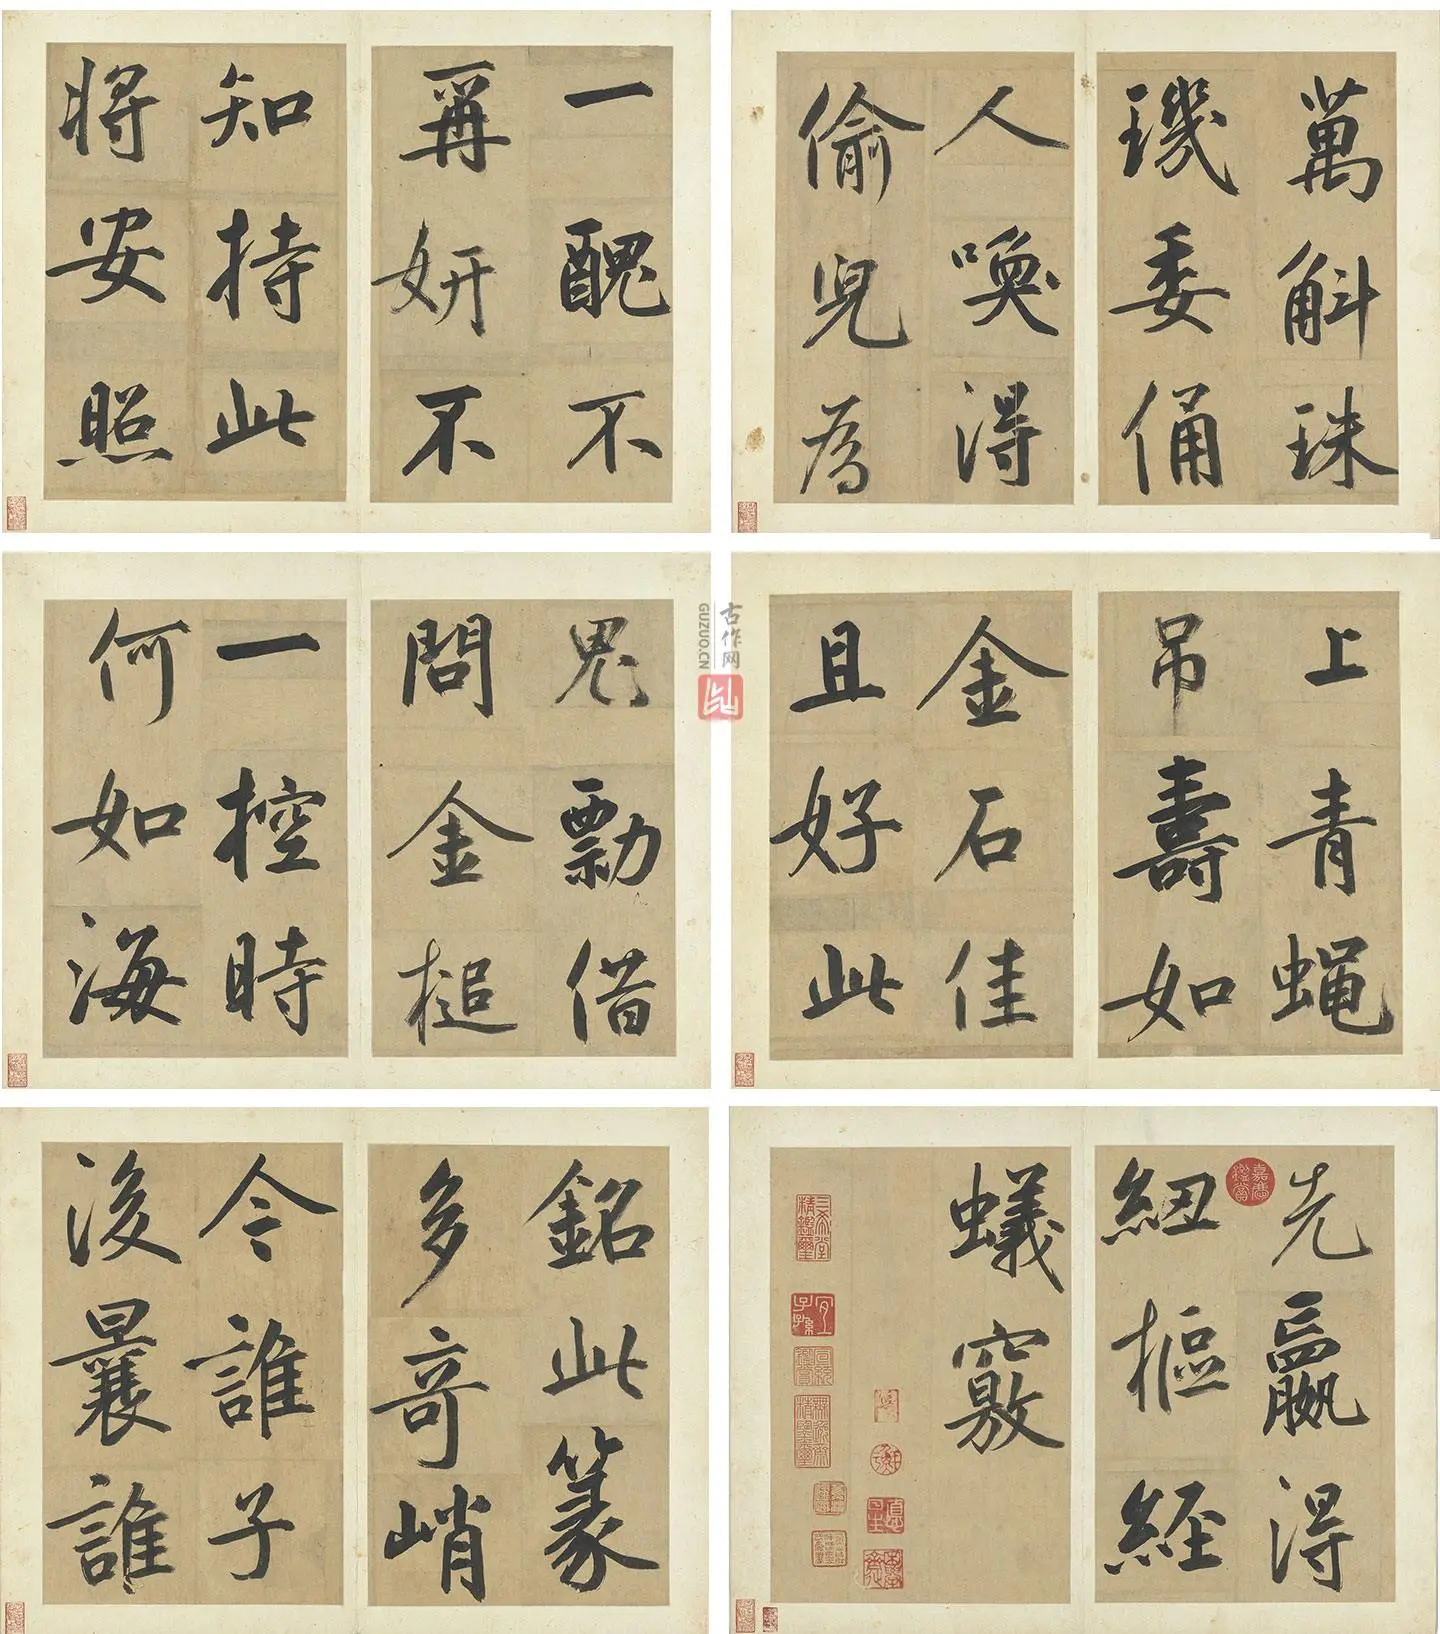 一醜不
再妍不
知持此
將安照
萬斛珠
璣委俑
人喚得
偷兒為
鬼勡借
問金槌
一控時
何如海
上青蠅
吊壽如
金石佳
且好此
銘此篆
多奇峭
今誰子
後曩誰
先贏得
紐樞經
蟻竅
古作网
GUZUO.CN